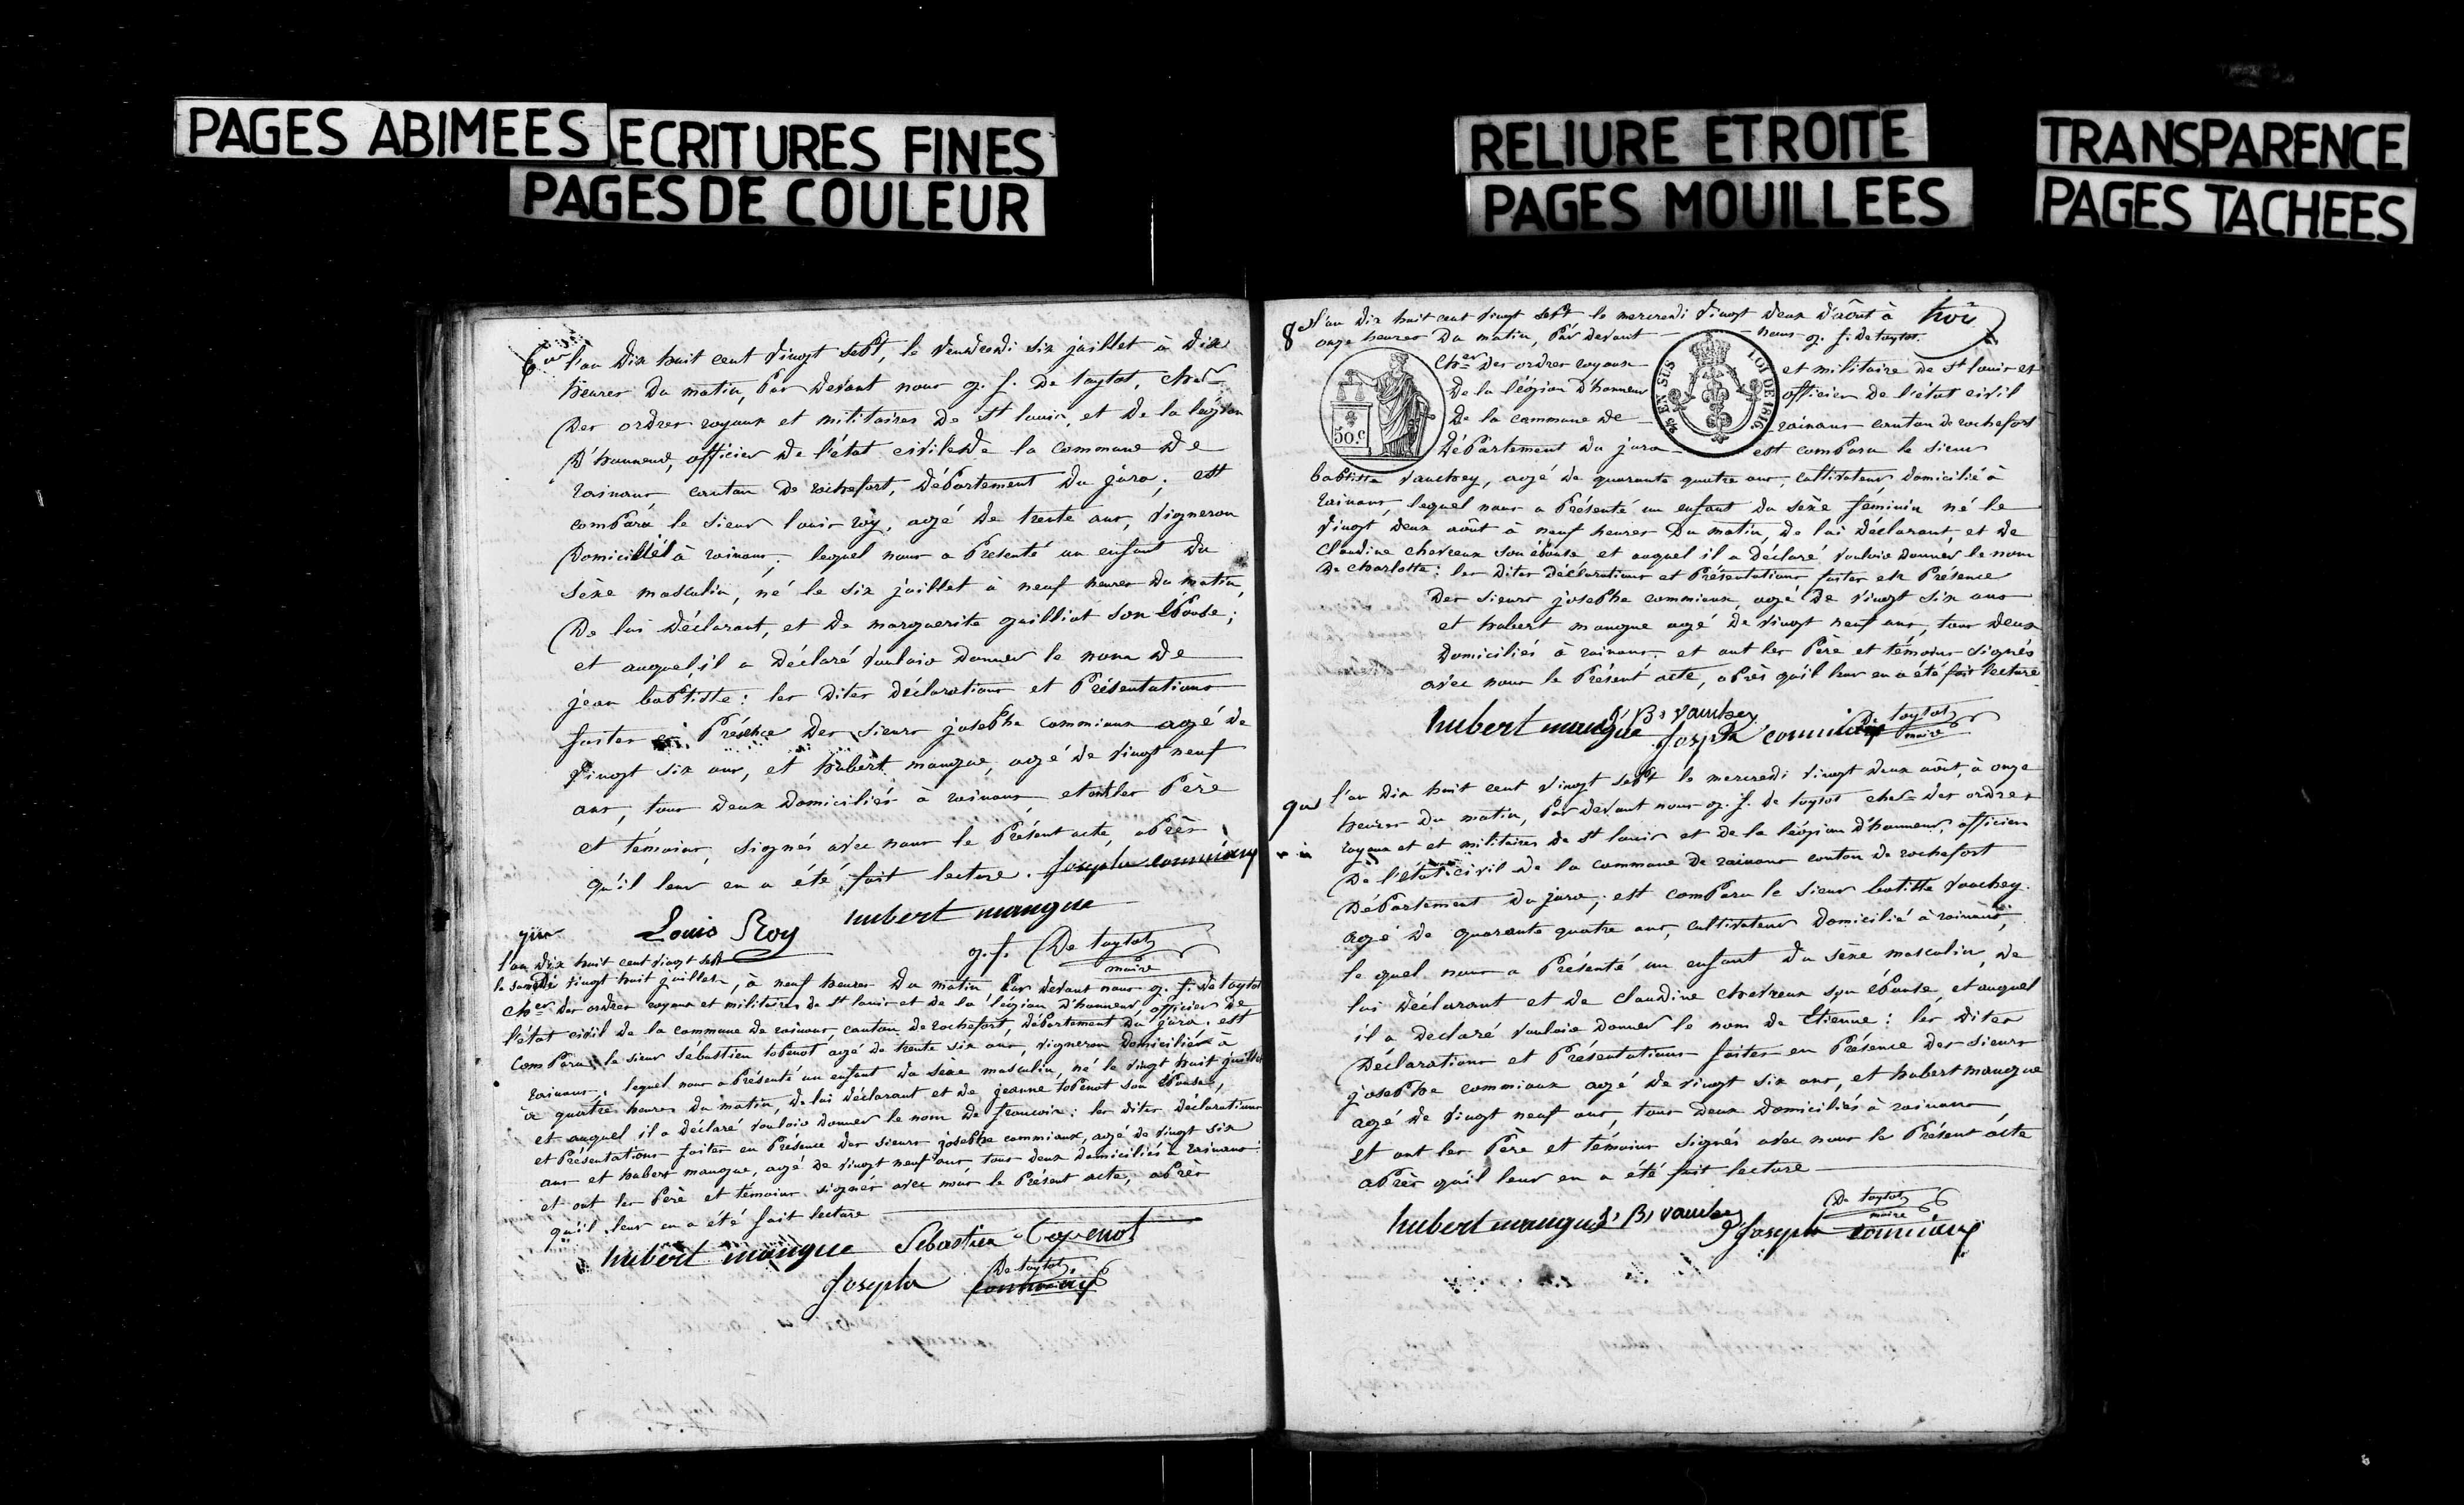 PAGES ABIMEES
ECRITURES FINES
PAGES DE COULEUR
RELIURE ETROITE
PAGES MOUILLEES
TRANSPARENCE
PAGES TACHEES
l'an dix huit cent vingt sept, le vendredi six juillet à dix
heures du matin, par devant nous g. f. de taytot, cher
des ordres royaux et militaires de st louis, et de la légion
d'honneur, officier de l'état civil de la commune de
rainans canton de rochefort, département du jura, est
comparu le sieur louis roy, agé de trente ans, vigneron
domicilié à rainans, lequel nous a présenté un enfant du
sèxe masculin, né le six juillet à neuf heures du matin,
de lui déclarant, et de marguerite guilliot son épouse;
et auquel il a déclaré vouloir donner le nom de
jean baptiste: les dites déclarations et présentations
faites en présence des sieurs josephe commiaux agé de
vingt six ans, et hubert mangue, agé de vingt neuf
ans, tous deux domiciliés à rainans et ont les père
et témoins, signés avec nous le présent acte, après
qu'il leur en a été fait lecture. Josephe commiaux
Louis Roy hubert mangue
g. f. De taytot
maire
l'an dix huit cent vingt sept
le samedi vingt huit juillet, à neuf heures du matin par devant nous g. f. de taytot
cher des ordres royaux et militaires de st louis et de la légion d'honneur, officier de
l'état civil de la commune de rainans, canton de rochefort, département du jura, est
comparu le sieur sébastien topenot agé de trente six ans, vigneron domicilié à
rainans, lequel nous a présenté un enfant du sèxe masculin, né le vingt huit juillet
à quatre heures du matin, de lui déclarant et de jeanne topenot son épouse,
et auquel il a déclaré vouloir donner le nom de françois: les dites déclarations
et présentations faites en présence des sieurs josephe commiaux, agé de vingt six
ans et hubert mangue, agé de vingt neuf ans tous deux domiciliés à rainans:
et ont les père et témoins signés avec nous le présent acte, après
qu'il leur en a été fait lecture
hubert mangue Sebastien Topenot
De taytot
Joseph commiaux
8e l'an dix huit cent vingt sept le mercredi vingt deux d'août à
onze heures du matin, par devant nous g. f. de taytot.
cher des ordres royaux et militaire de st louis et
de la légion d'honneur officier de l'état civil
de la commune de rainans canton de rochefort
département du jura est comparu le sieur
50.c
25 EN SUS LOI DE 1816
baptiste vauchey, agé de quarante quatre ans, cultivateur domicilié à
rainans, lequel nous a présenté un enfant du sèxe féminin né le
vingt deux août à neuf heures du matin, de lui déclarant, et de
claudine chevreux son épouse et auquel il a déclaré vouloir donner le nom
de charlotte: les dites déclarations et présentations faites en présence
des sieurs josephe commiaux, agé de vingt six ans
et hubert mangue agé de vingt neuf ans, tous deux
domiciliés à rainans, et ont les père et témoins signés
avec nous le présent acte, après qu'il leur en a été fait lecture
hubert mangue J B vauchey De taytot
Joseph commiaux maire
l'an dix huit cent vingt sept le mercredi vingt deux août, à onze
heures du matin, par devant nous g. f. de taytot cher des ordres
royaux et et militaires de st louis et de la légion d'honneur, officier
de l'état civil de la commune de rainans canton de rochefort
département du jura, est comparu le sieur batiste vauchey.
agé de quarante quatre ans, cultivateur domicilié à rainans,
le quel nous a présenté un enfant du sèxe masculin, de
lui déclarant et de claudine chevreux son épouse, et auquel
il a déclaré vouloir donner le nom de Etienne: les dites
déclarations et présentations faites en présence des sieurs
josephe commiaux agé de vingt six ans, et hubert mangue
agé de vingt neuf ans, tous deux domiciliés à rainans
et ont les père et témoins signés avec nous le présent acte
après qu'il leur en a été fait lecture
De taytot
maire
hubert mangue J B vauchey Joseph commiaux